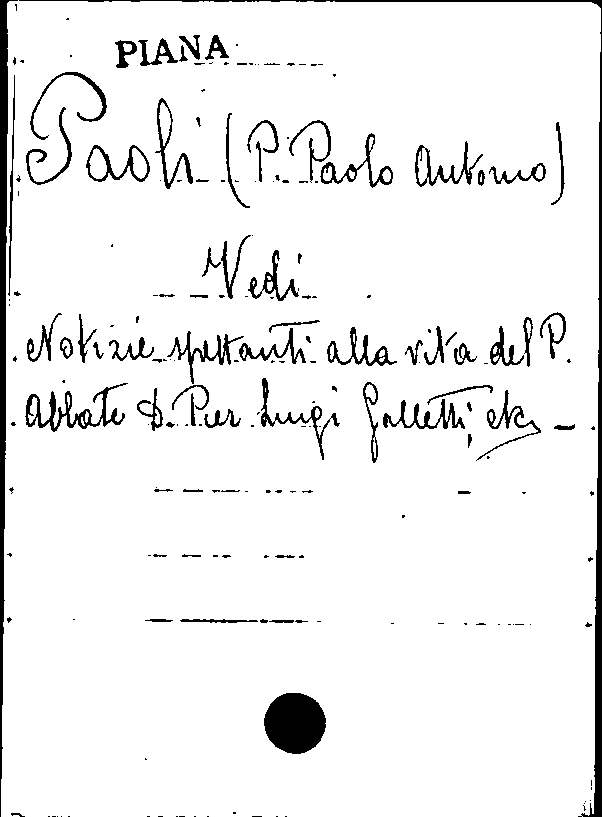 PIANA
Paoli (P. Paolo Antonio)
Vedi
Notizie spettanti alla vita del P.
Abbate D. Pier Luigi Galletti, etc –